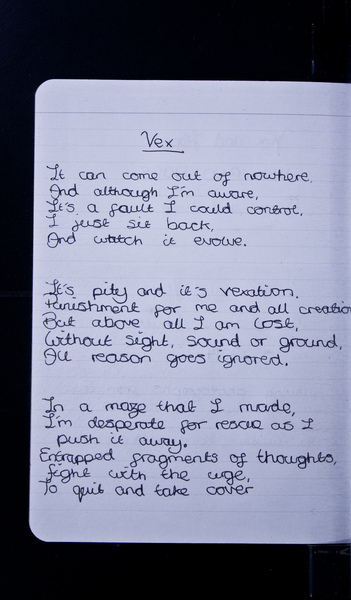 Vex
It can come out of nowhere.
And although I'm aware,
It's a fault I could control,
I just sit back,
And watch it evolve.
It's pity and it's vexation.
Punishment for me and all creation
But above all I am lost,
Without sight, sound or ground,
All reason goes ignored.
In a maze that I made,
I'm desperate for rescue as I
push it away.
Entrapped fragments of thoughts,
fight with the urge,
To quit and take cover